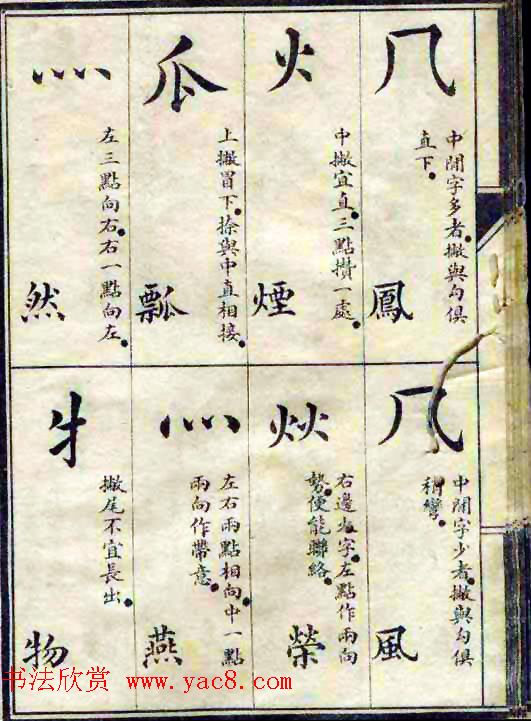 𠘨
中間字多者撇與勾俱
直下
鳳
火
中撇宜直三點攢一處
煙
瓜
上撇冒下捺與中直相接
瓢
灬
左三點向右右一點向左
然
𠘨
中間字少者撇與勾俱
稍彎
風
炏
右邊火字左點作兩向
勢便能聯絡
榮
灬
左右兩點相向中一點
兩向作帶意
燕
牛
撇尾不宜長出
物
书法欣赏 www.yac8.com